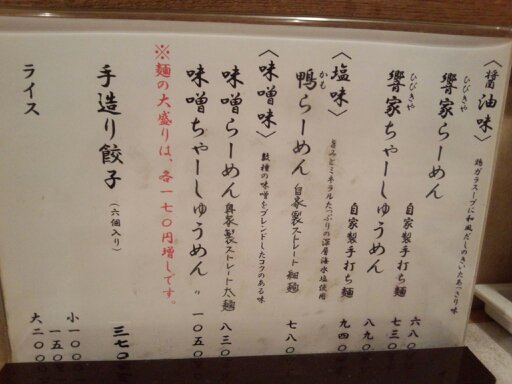 〈醤油味〉
鶏ガラスープに和風だしのきいたあっさり味
響家らーめん
ひびきや
自家製手打ち麺
六八〇
七三〇
響家ちゃーしゅうめん
ひびきや
自家製手打ち麺
八九〇
九四〇
〈塩味〉
旨みとミネラルたっぷりの深層海水塩使用
鴨らーめん
かも
自家製ストレート細麺
七八〇
〈味噌味〉
数種の味噌をブレンドしたコクのある味
味噌らーめん
自家製ストレート太麺
八三〇
味噌ちゃーしゅうめん
〃
一〇五〇
※麺の大盛りは、各一七〇円増しです。
手造り餃子
(六個入り)
三七〇
ライス
小一〇〇
一五〇
大二〇〇